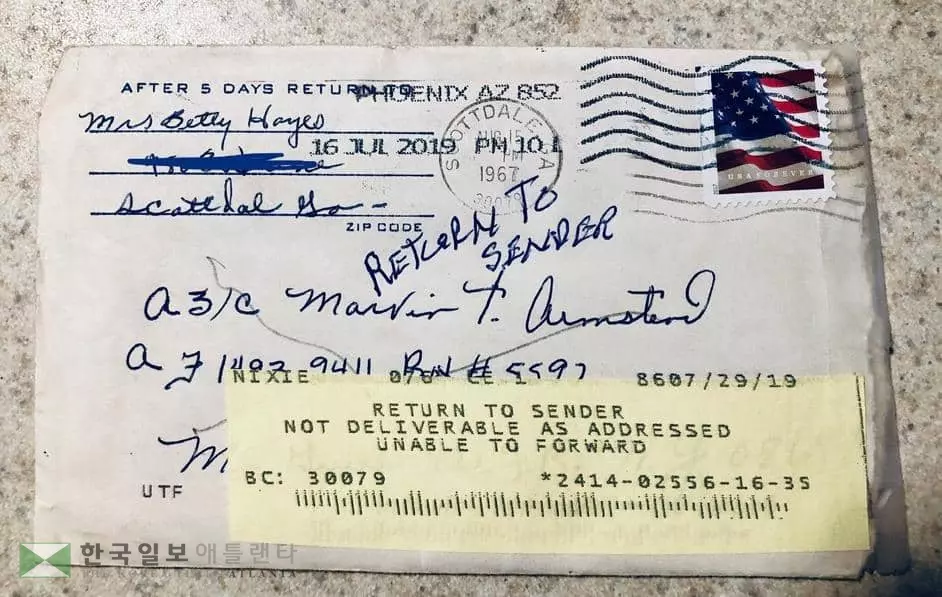 AFTER 5 DAYS RETURN TO
PHOENIX AZ 852
Mrs Betty Hayes
16 JUL 2019 PM 10 1
SCOTTDALE GA
AUG 15
PM
1967
30079
Scottdal Ga-
ZIP CODE
USA FOREVER
RETURN TO
SENDER
A 3/C Marvin T. Armstend
AF 1492 9411 Bn # 5597
NIXIE 8607/29/19
RETURN TO SENDER
NOT DELIVERABLE AS ADDRESSED
UNABLE TO FORWARD
UTF
BC: 30079 *2414-02556-16-35
한국일보 애틀랜타
THE KOREA TIMES ATLANTA